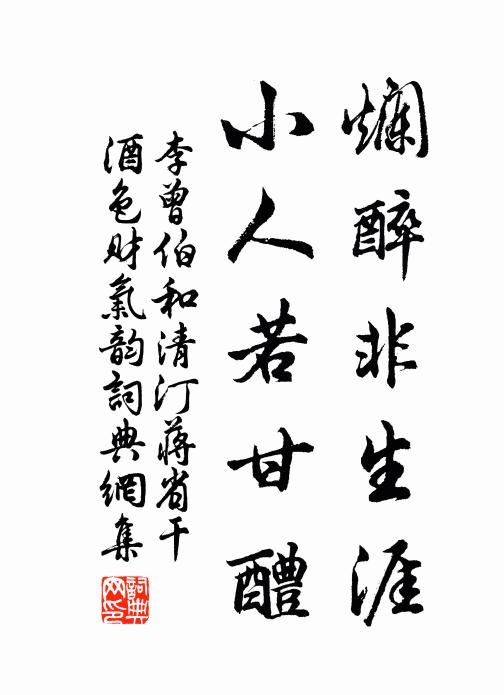 爛醉非生涯
小人若甘醴
李曾伯和清汀蔣省干
酒色財氣韵詞典網集